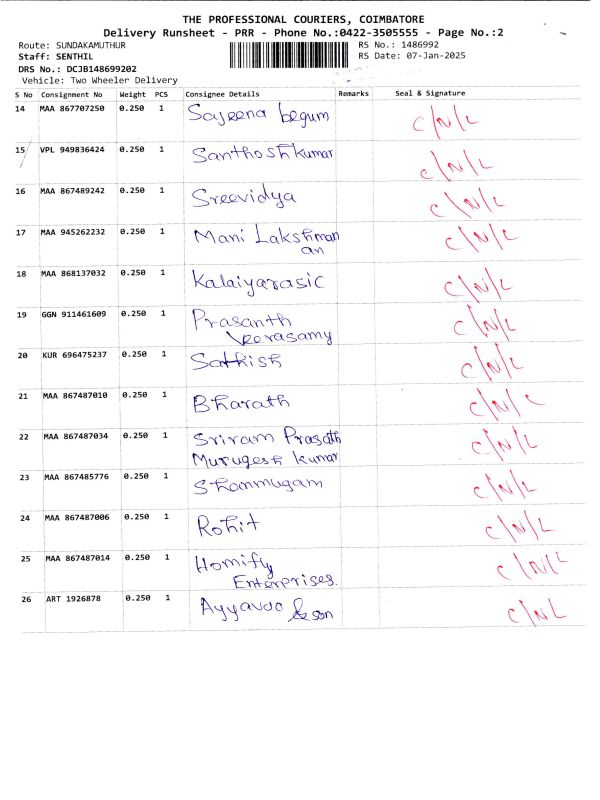 THE PROFESSIONAL COURIERS, COIMBATORE
Delivery Runsheet - PRR - Phone No.:0422-3505555 - Page No.:2
Route: SUNDAKAMUTHUR RS No.: 1486992
Staff: SENTHIL RS Date: 07-Jan-2025
DRS No.: DCJB148699202
Vehicle: Two Wheeler Delivery
S No Consignment No Weight PCS Consignee Details Remarks Seal & Signature
14 MAA 867707250 0.250 1 Sajeena begum C/N/L
15 VPL 949836424 0.250 1 Santhosh kumar C/N/L
16 MAA 867489242 0.250 1 Sreevidya C/N/L
17 MAA 945262232 0.250 1 Mani Lakshman C/N/L
an
18 MAA 868137032 0.250 1 Kalaiyarasic C/N/L
19 GGN 911461609 0.250 1 Prasanth C/N/L
Veerasamy
20 KUR 696475237 0.250 1 Sathish C/N/L
21 MAA 867487010 0.250 1 Bharath C/N/L
22 MAA 867487034 0.250 1 Sriram Prasath C/N/L
Murugesh kumar
23 MAA 867485776 0.250 1 Shanmugam C/N/L
24 MAA 867487006 0.250 1 Rohit C/N/L
25 MAA 867487014 0.250 1 Homifly C/N/L
Enterprises.
26 ART 1926878 0.250 1 Ayyavoo & son C/NL